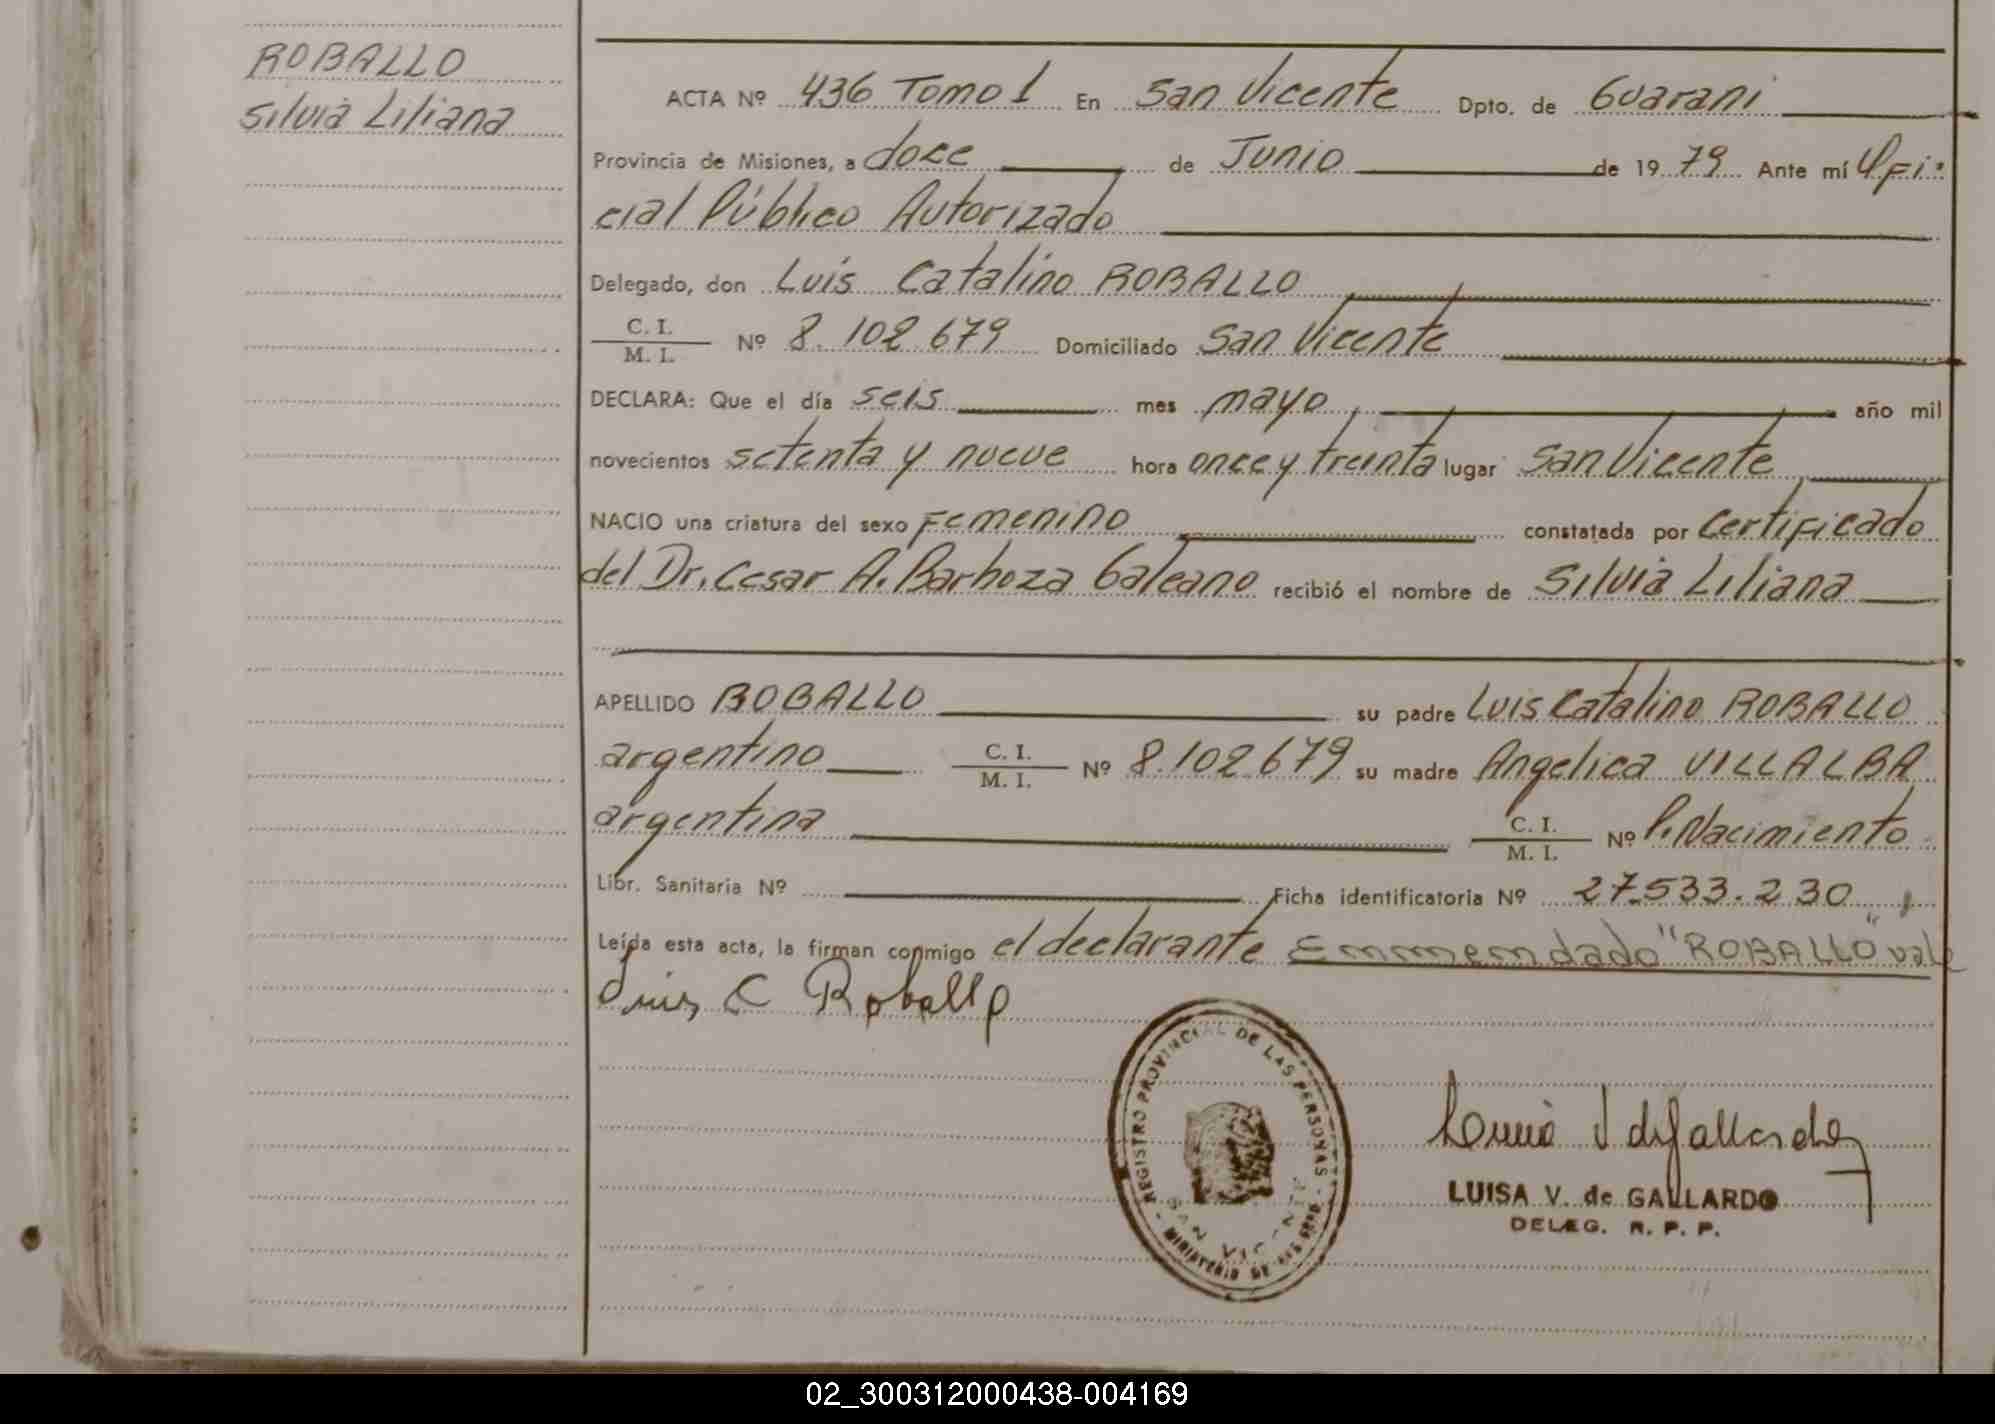 ROBALLO
Silvia Liliana
ACTA Nº 436 Tomo 1 En San Vicente Dpto. de Guarani
Provincia de Misiones, a doce de Junio de 1979 Ante mí Ofi-
cial Público Autorizado
Delegado, don Luis Catalino ROBALLO
C. I.
M. I. Nº 8.102.679 Domiciliado San Vicente
DECLARA: Que el día seis mes mayo año mil
novecientos setenta y nueve hora once y treinta lugar San Vicente
NACIO una criatura del sexo Femenino constatada por certificado
del Dr. Cesar A. Barboza Galeano recibió el nombre de Silvia Liliana
APELLIDO ROBALLO su padre Luis Catalino ROBALLO
argentino C. I.
M. I. Nº 8.102.679 su madre Angelica VILLALBA
argentina C. I.
M. I. Nº P. Nacimiento
Libr. Sanitaria Nº Ficha identificatoria Nº 27.533.230
Leída esta acta, la firman conmigo el declarante Emmendado "ROBALLO" vale
Luis C Roballo
REGISTRO PROVINCIAL DE LAS PERSONAS
SAN VICENTE
MINISTERIO DE
LUISA V. de GALLARDO
DELEG. R. P. P.
02_300312000438-004169